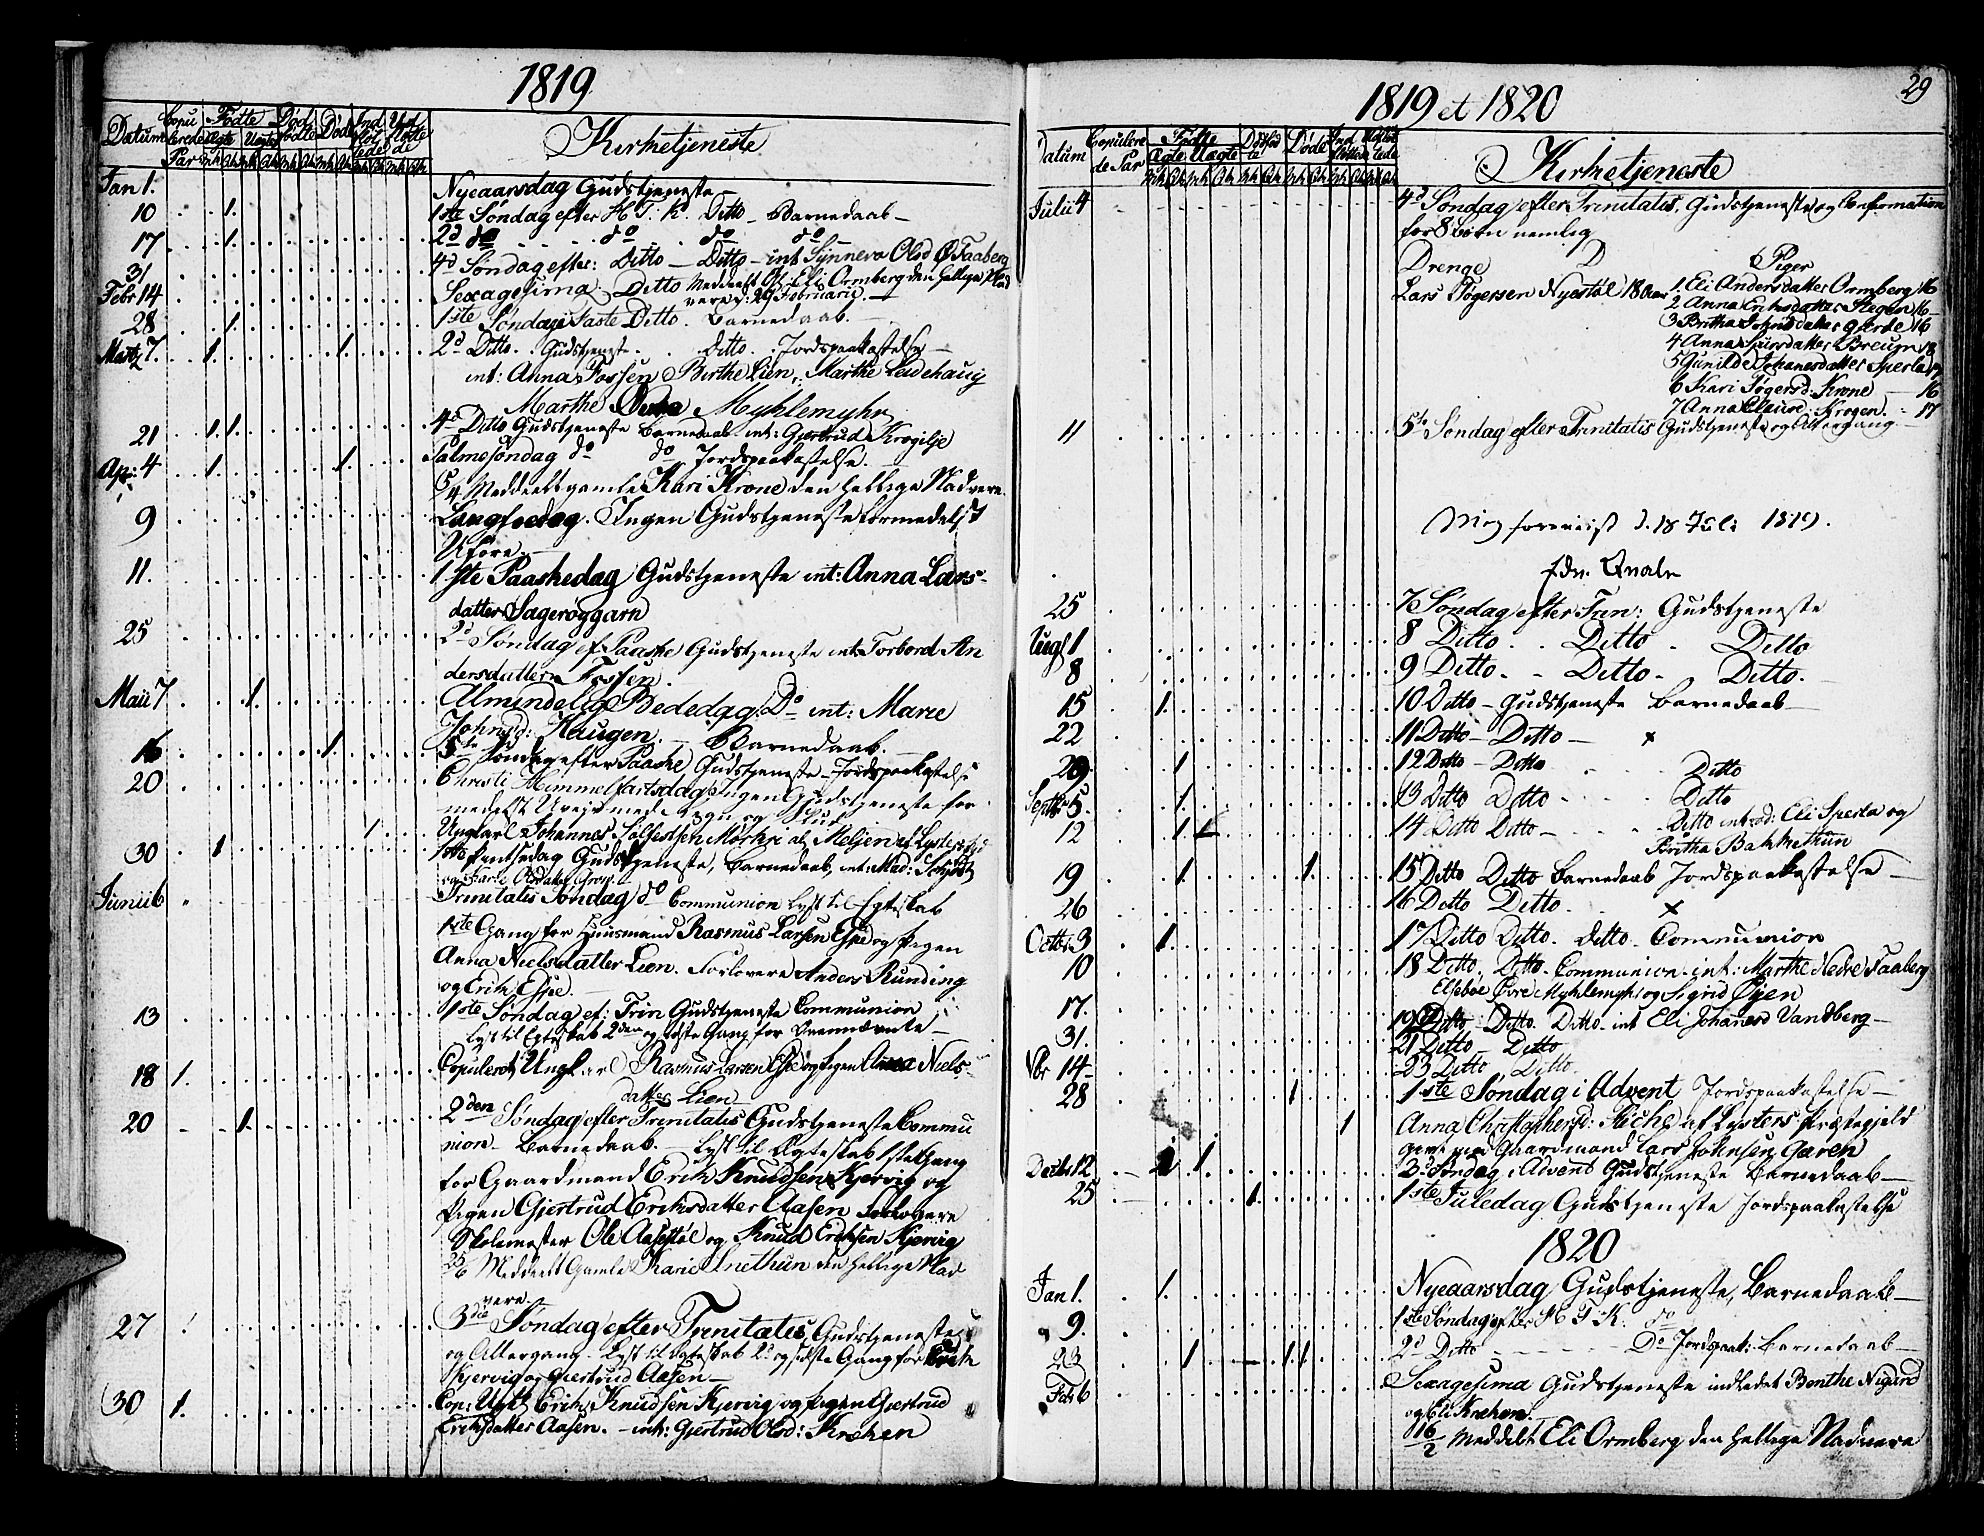 1819
Datum Copulerede Par Fødte Ægte Uægte Dødfødte Døde Indflöttede Udflöttede Kirketjeneste
Jan 1. Nyeaarsdag Gudstjeneste
10 1. 1ste Søndag efter H T: K. Ditto Barnedaab
17 1. 2d do do do do
31 4d Søndag efter: Ditto Ditto int Synneva Olsd Faaberg
Febr 14 Sexagesima Ditto Meddeelt Eli Ormberg den hellige Nad
vere d: 29 Februarii.
28 1. 1ste Søndag i Faste Ditto Barnedaab.
Martz 7. 1. 1. 2d Ditto Gudstjeneste Ditto Jordspaakastelse
int: Anna Fossen Birthe Lien, Marthe Leidehaug
Marthe Myhlemyhr
21 1. 1. 4d Ditto Gudstjeneste Barnedaab int: Giertrud Krogilje
Apr: 4 1. 1. Palmesøndag do do Jordspaakastelse.
5/4 Meddeelt gamle Kari Krone den hellige Nadvere.
9 Langfredag. Ingen Gudstjeneste formedelst
Uføre.
11. 1ste Paaskedag Gudstjeneste int: Anna Lars-
datter Sagerøggarn
25 2d Søndag ef Paaske Gudstjeneste int: Torbord An
dersdatter Fossen
Maii 7 1. Almindelig Bededag Do int: Marie
Johnsd: Haugen. Barnedaab.
16 1. 5te Søndag efter Paaske Gudstjeneste Jordspaakastelse
20 Christi Himmelfartsdag Ingen Gudstjeneste for
medelst Uvejr med Regn og Slud
1. Ungkarl Johannes Mørkri af Lyster
30 1. 1ste Pintsedag Gudstjeneste, Barnedaab, int: Mad: Schjøtt
Junii 6 Trinitatis Søndag do Communion Lyst til Egteskab
1ste Gang for Huusmand Rasmus Larsen Espe og Pigen
Anna Nielsdatter Lien. Forlovere Anders Runding
og Erik Espe.
13 1ste Søndag ef: Trin Gudstjeneste Communion
Lyst til Egteskab 2den og sidste Gang for Ovennævnte
18 1. Copuleret Ungkarl Rasmus Larsen Espe og Pigen Anna Niels-
datter Lien
20 1. 2den Søndag efter Trinitatis Gudstjeneste Commu
nion Barnedaab. Lyst til Ægteskab 1ste Gang
for Gaardmand Erik Knudsen Kjervig og
Pigen Giertrud Eriksdatter Aasen Forlovere
Skolemester Ole Aasestøl og Knud Eriksen Kjervig
Meddeelt Gamle Karie Snethun den hellige Nad
vere.
27 3die Søndag efter Trinitatis, Gudstjeneste
og Altergang. Lyst til Egteskab 2d og sidste Gang for Erik
Kjervig og Giertrud Aasen
30 1. Cop: Ungk Erik Knudsen Kjervig og Pigen Giertrud
Eriksdatter Aasen. int: Gjertrud Olsd: Krehen
29
1819 et 1820
Datum Copulerede Par Fødte Ægte Uægte Dødfødte Døde Kirketjeneste
Julii 4 4d Søndag efter Trinitatis, Gudstjeneste og Confirmation
for 8 børn nemlig
Drenge Piger
Lars Tøgersen Nyestøl 18 Aar 1 Eli Andersdatter Ormberg 16
2 Anna Eriksdatter Hegge 16
3 Britha Datter Gierde 16
4 Anna Siursdatter 18
5 Gunilde Johanesdatter Sperle 17
6 Kari Tøgersd: Krone 16
7 Anna Krogen. 17
11 5te Søndag efter Trinitatis Gudstjeneste og Altergang
foreviist d. 18 Juli 1819.
Edv. Qvale
25 7d Søndag efter Trin: Gudstjeneste
Aug 1 8 Ditto Ditto Ditto
8 9 Ditto Ditto Ditto.
15 1. 10 Ditto Gudstjeneste Barnedaab
22 11 Ditto Ditto x
29 1 12 Ditto Ditto Ditto
Septbr 5. 1 13 Ditto Ditto Ditto
12 1 14 Ditto Ditto Ditto introd: Eli Sperla og
Britha Bakkethun
19 1 1. 15 Ditto Ditto Barnedaab Jordspaakastelse
26 16 Ditto Ditto. x
Octbr 3 1. 17 Ditto Ditto. Ditto. Communion
10 18 Ditto Ditto. Communion int: Marthe Nedre Faaberg
Elseboe Øvre Myhlemyhr og Sigrid Øyen
17. 19 Ditto Ditto Ditto int Eli Johanesd Vandberg
31. 21 Ditto Ditto
Nbr 14 23 Ditto Ditto.
28 1 1ste Søndag i Advent Jordspaakastelse
1 Anna Christophersd: af Lysters Præstegjeld
givt med Gaardmand Lars Johnsen Garen
Decbr 12 1 1 3d Søndag i Advent Gudstjeneste Barnedaab
25 1. 1ste Juledag Gudstjeneste Jordspaakastelse
1820
Jan 1. 1. Nyeaarsdag Gudstjeneste, Barnedaab
9. 1ste Søndag efter H T. K. do
23 1 1 1 2d Ditto Do Jordspaak: Barnedaab
Feb 6 Sexagesima Gudstjeneste indledet Benthe Nigard
og Eli Krehen.
16/2 Meddelt Eli Ormberg den hellige Nadvere